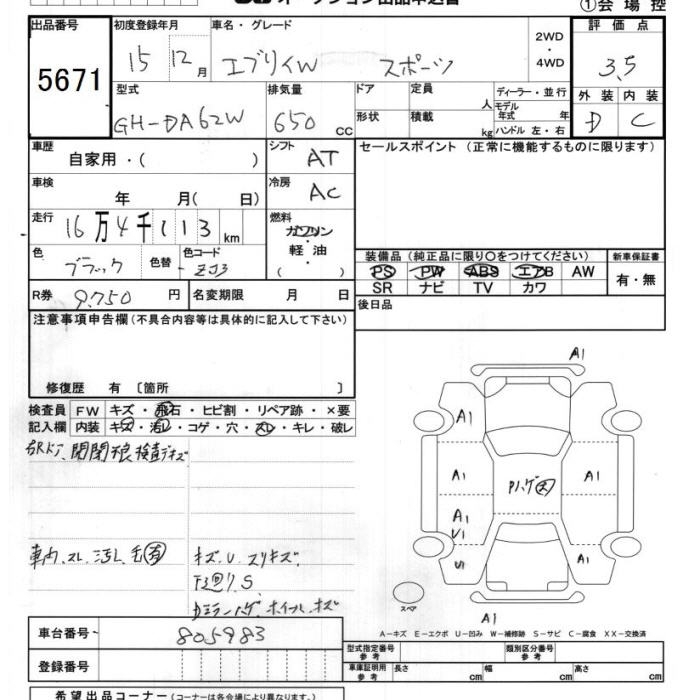 オークション出品申込書
①会場控
出品番号 初度登録年月 車名・グレード 評価点
5671 15 12月 エブリイW スポーツ 2WD・4WD 3.5
型式 排気量 ドア 定員 人 ディーラー・並行 外装 内装
GH-DA62W 650 cc 形状 積載 kg モデル年式 年 ハンドル 左・右 D C
車歴 自家用・( ) シフト AT セールスポイント(正常に機能するものに限ります)
車検 年 月( 日) 冷房 AC
走行 16万4千113km 燃料 ガソリン 軽・油 ( )
色 ブラック 色替 色コード ZJ3
装備品(純正品に限り○をつけてください) 新車保証書
PS PW ABS エアB AW 有・無
SR ナビ TV カワ
R券 9.750円 名変期限 月 日 後日品
注意事項申告欄(不具合内容等は具体的に記入して下さい)
修復歴 有 〔箇所 〕
検査員 FW キズ・飛石・ヒビ割・リペア跡・×要
記入欄 内装 キズ・汚レ・コゲ・穴・スレ・キレ・破レ
A1
A1
A1 Pハゲ大 A1
A1
U1
U1 A1
スペア
A1
車内.スレ.汚レ.毛有 キズ.U.スリキズ
下廻り.S
ミラーハゲ.ホイールキズ
A-キズ E-エクボ U-凹み W-補修跡 S-サビ C-腐食 XX-交換済
車台番号 805983
型式指定番号 参考 類別区分番号 参考
登録番号
車庫証明用 参考 長さ cm 幅 cm 高さ cm
希望出品コーナー(コーナーは各会場により異なります。)